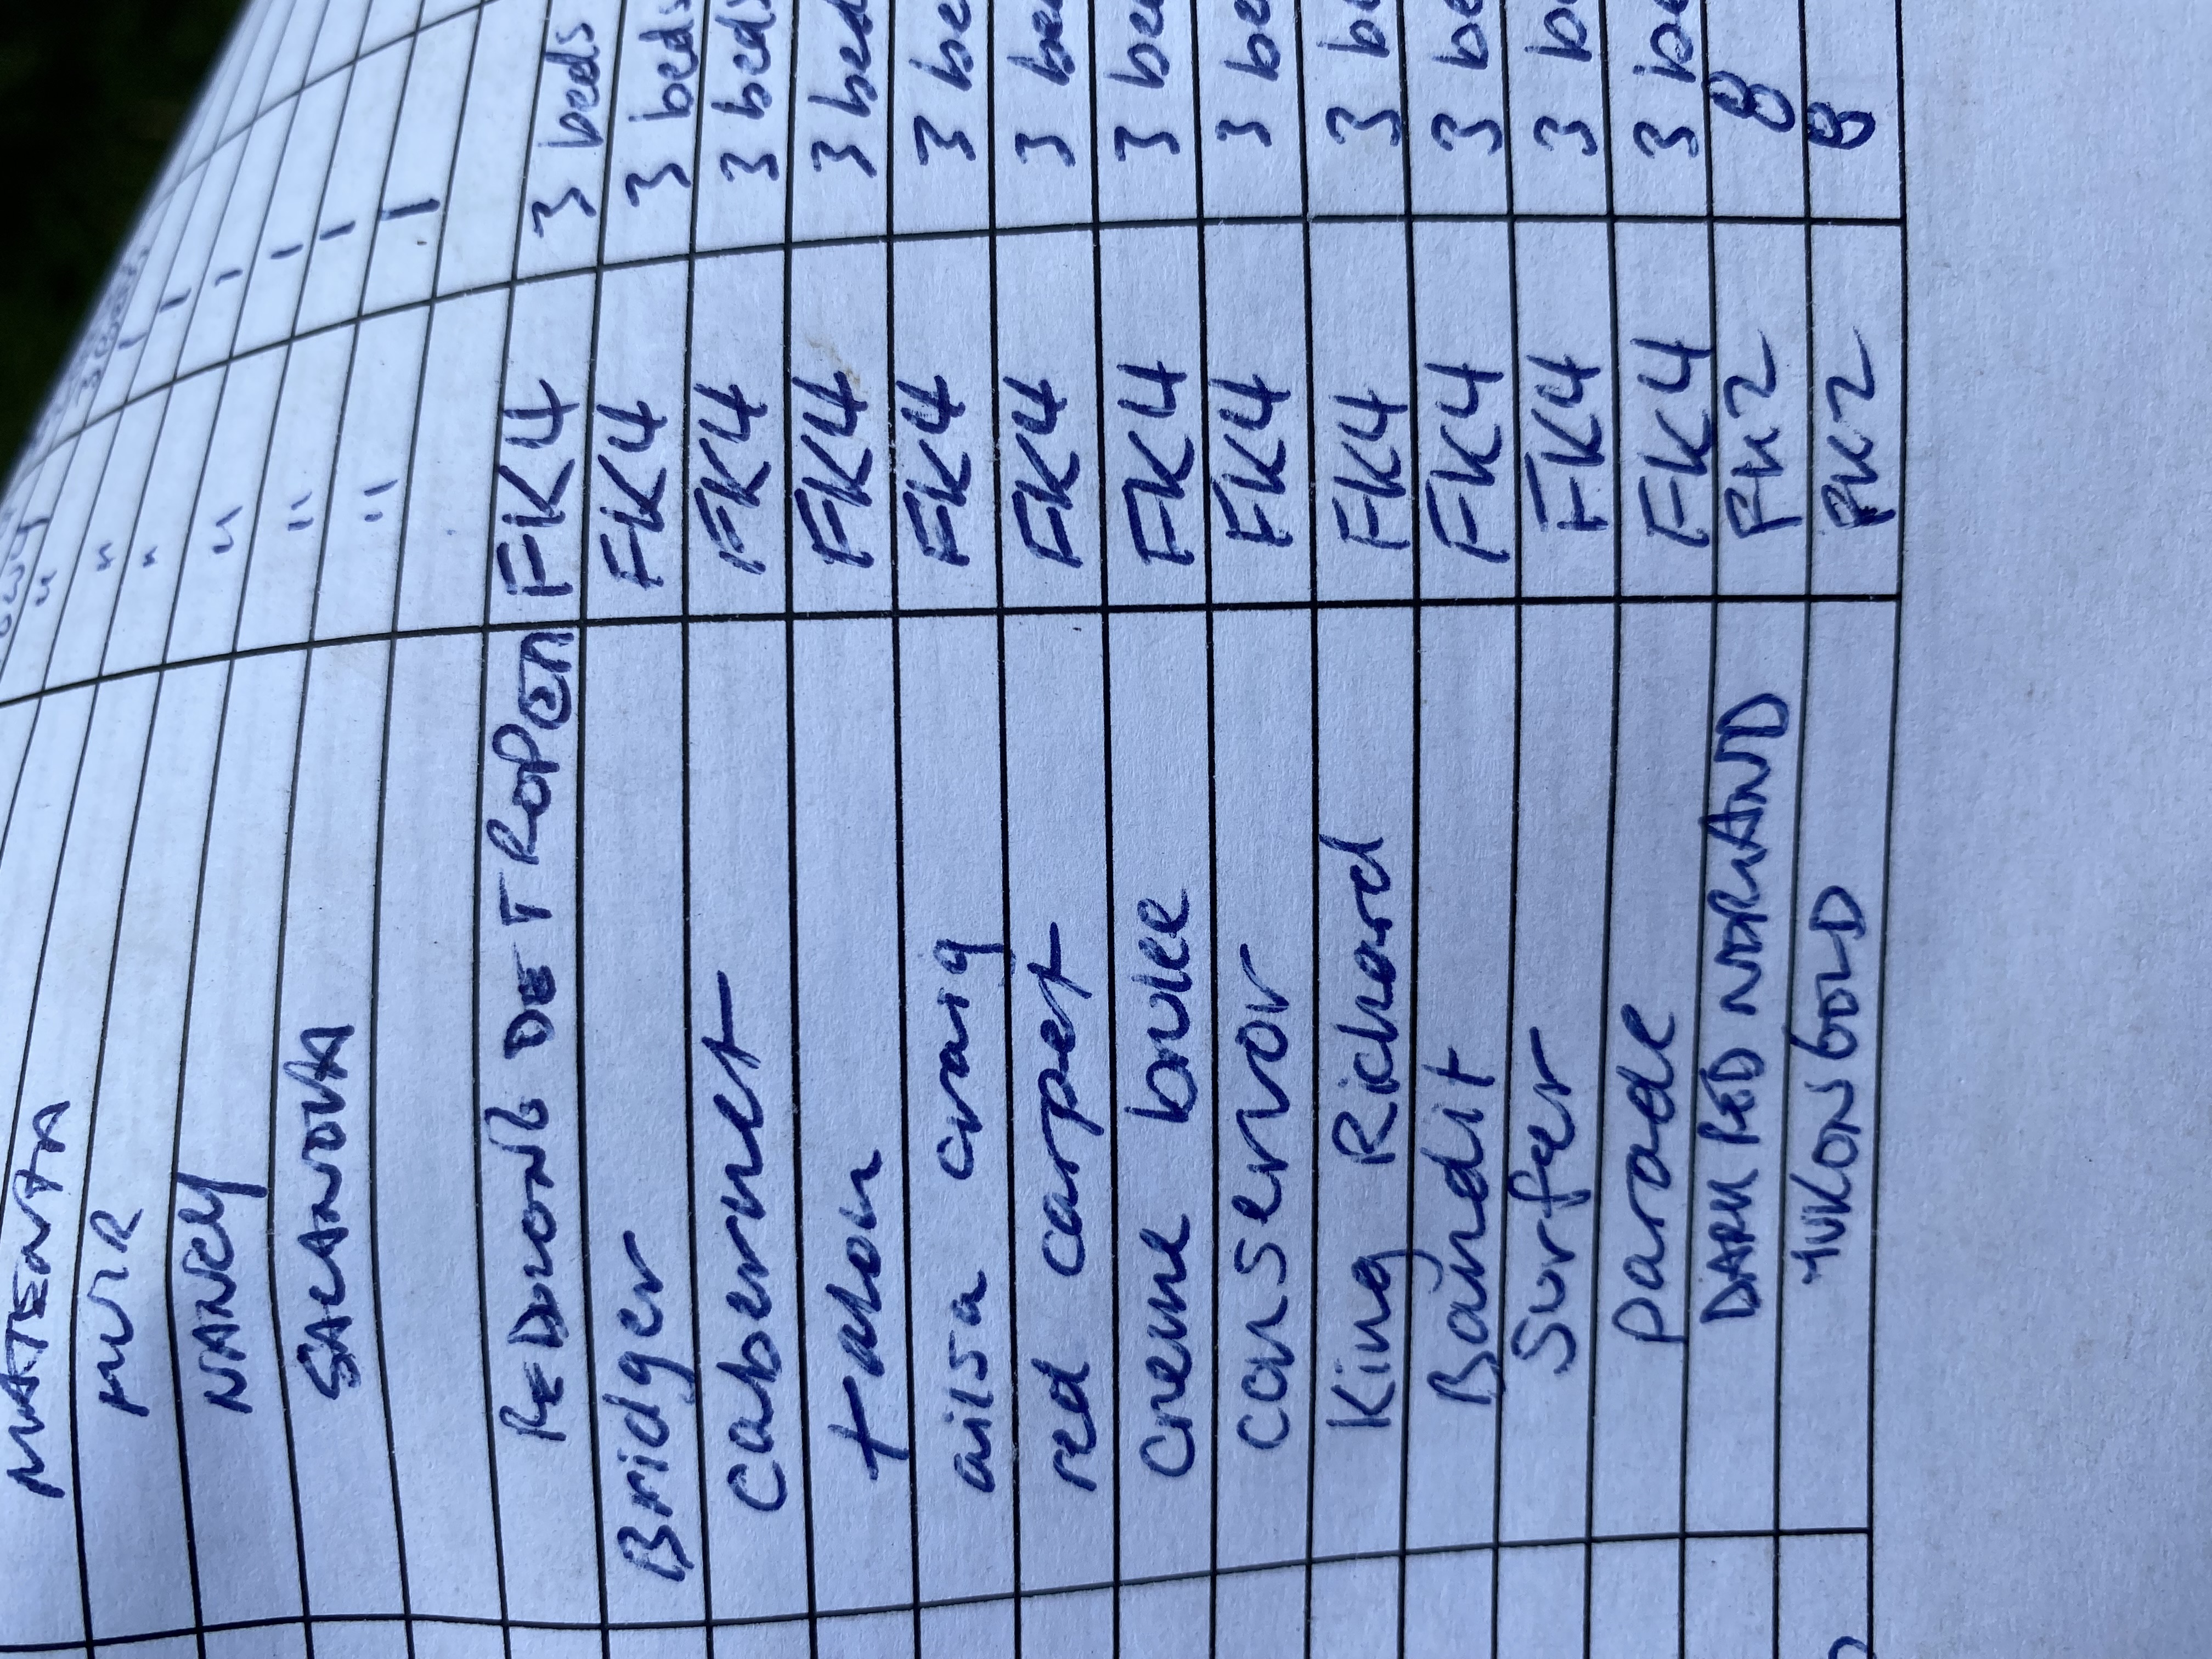 MATENTA "
MUIR " 1
NANCY " 1
SALANOVA " 1
" 1
REDLONG DE TROPEA FK4 3 beds
Bridger FK4 3 beds
cabernet FK4 3 beds
talon FK4 3 bed
ailsa craig FK4 3 be
red carpet FK4 3 be
creme brulee FK4 3 be
conservor FK4 3 be
King Richard FK4 3 be
Bandit FK4 3 be
Surfer FK4 3 b
parade FK4 3 be
DARK RED NORLAND FK2 8
YUKON GOLD FK2 8